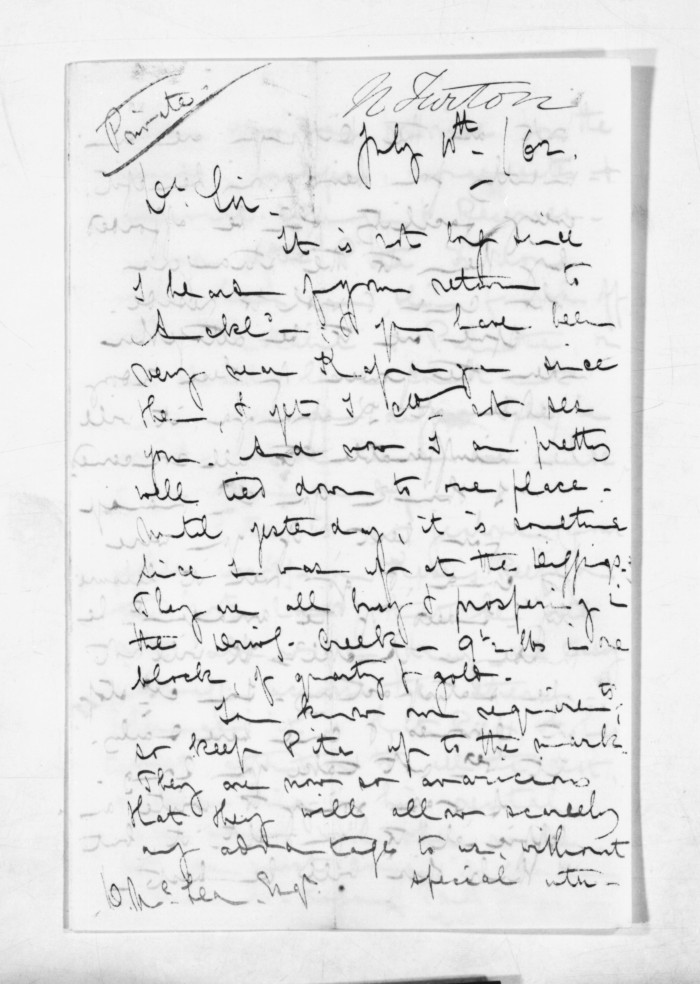 Private
N Turton
July 10th / 62.
Dr. Sir -
It is not long since
I heard of your return to
Auckld - & you have been
very near Kapanga since
then, & yet I did not see
you. And now I am pretty
well tied down to one place -
Until yesterday, it is sometime
since I was up at the Diggings.
They are all busy & prospering in
the Driving Creek - 9½ lbs in one
block, of quartz & gold.
You know our requirements,
so keep Pita up to the mark.
They are now so avaricious
that they will allow scarcely
any advantage to us, without
special
D. McLean Esqr